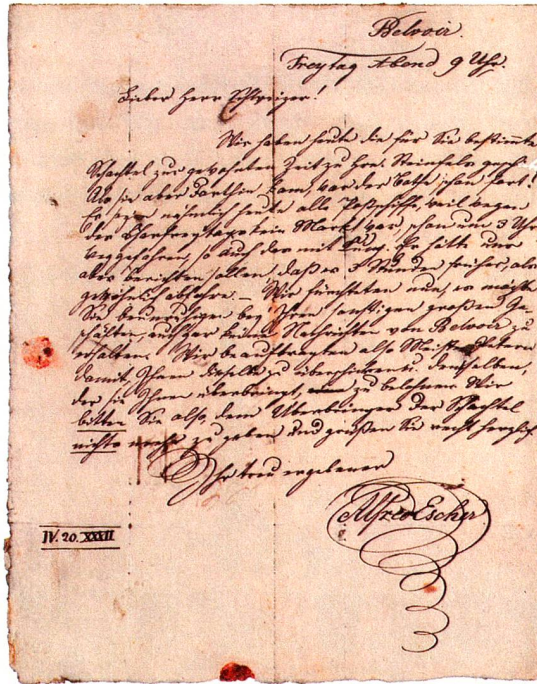 Belvoir.
Freytag Abend 9 Uhr.
Lieber Herr Schweizer!
Wir haben heute die für Sie bestimmte
Schachtel zur gewohnten Zeit zu Hrn.
Als sie aber dorthin kam, war der Bothe schon fort!
Es seyen nehmlich heute alle weil wegen
des Charfreytags kein Markt war, schon um 3 Uhr
weggefahren, so auch der mit Hätte uns
aber berichten sollen, daß er 3 Stunden früher, als
gewöhnlich abfahre. – Wir fürchteten nun, es möchte
Sie beunruhigen bey Ihren sonstigen großen Ge-
schäften keine Nachrichten von Belvoir zu
erhalten. Wir beauftragten also
damit, Ihnen dieselbe zu überschicken u. denselben,
der sie Ihnen überbringt, zu belohnen. Wir
bitten Sie also, dem Überbringer der Schachtel
nichts mehr zu geben und grüßen Sie recht herzlich
Ihr treu ergebener
Alfred Escher
IV. 20. XXXII